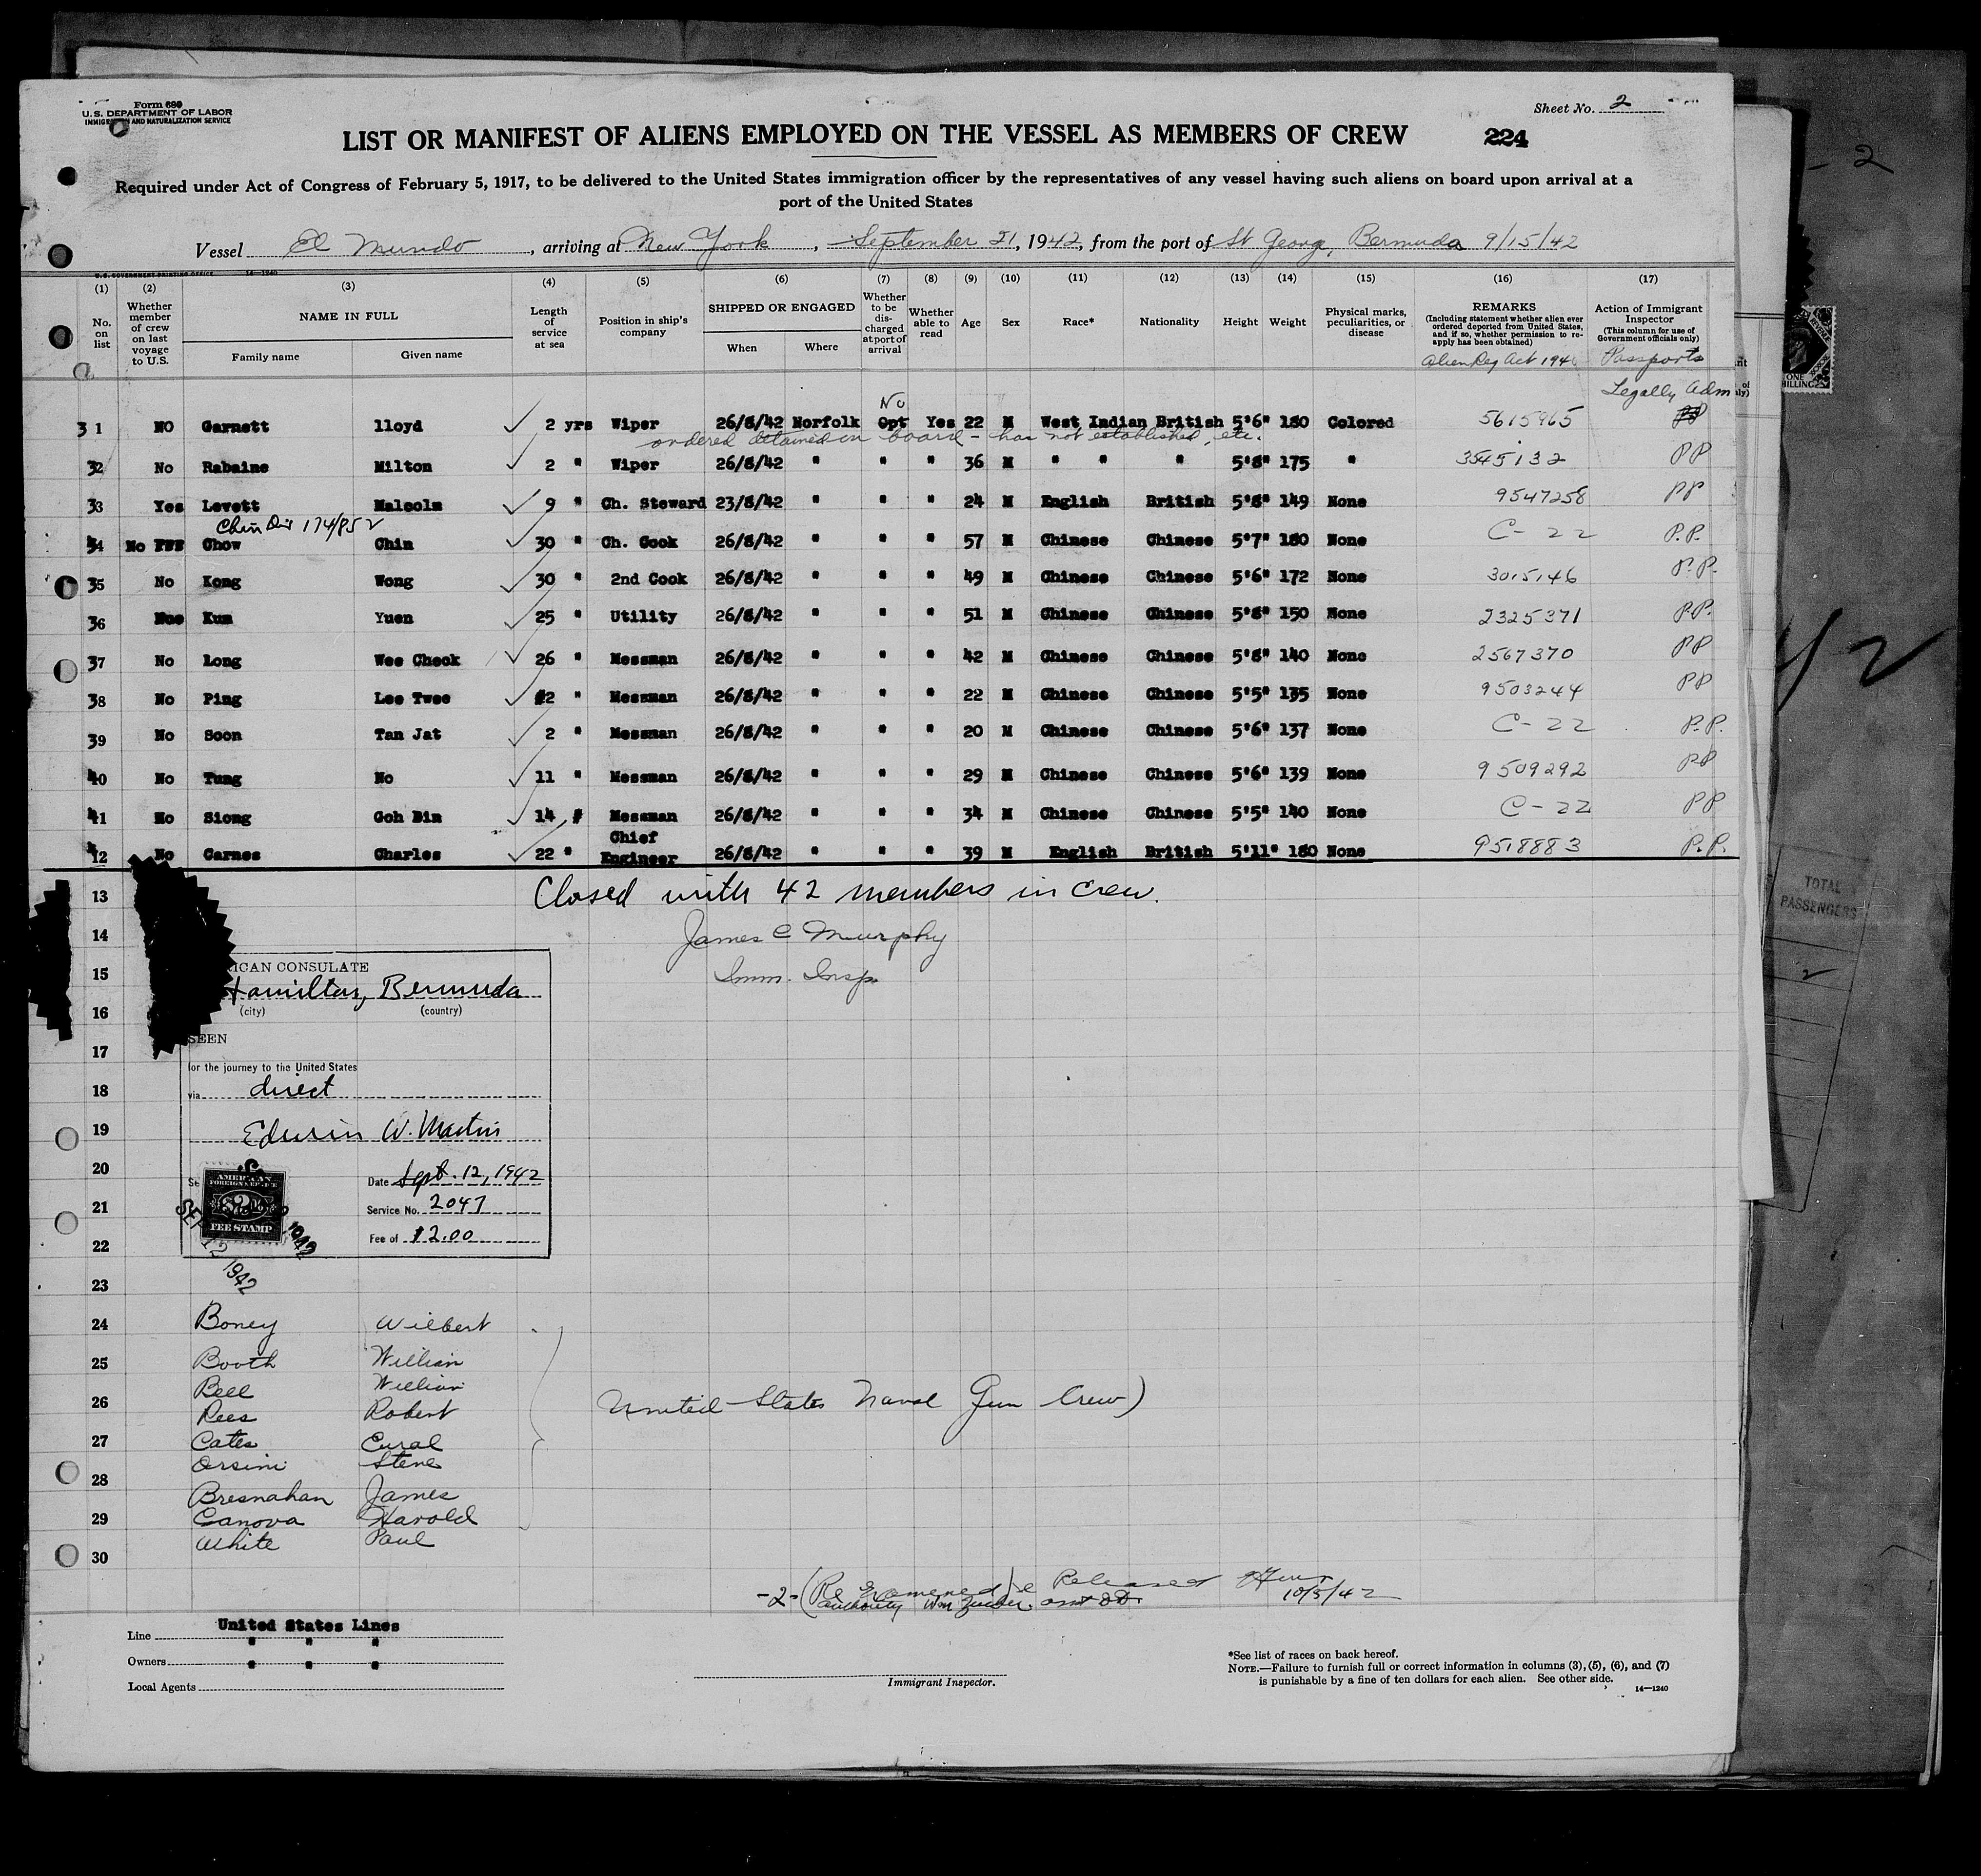 Form 689
U.S. DEPARTMENT OF LABOR
IMMIGRATION AND NATURALIZATION SERVICE
Sheet No. 2
LIST OR MANIFEST OF ALIENS EMPLOYED ON THE VESSEL AS MEMBERS OF CREW 224
Required under Act of Congress of February 5, 1917, to be delivered to the United States immigration officer by the representatives of any vessel having such aliens on board upon arrival at a
port of the United States
Vessel El Mundo, arriving at New York, September 21, 1942, from the port of St Georg, Bermuda 9/15/42
U.S. GOVERNMENT PRINTING OFFICE 14—1240
(1) (2) (3) (4) (5) (6) (7) (8) (9) (10) (11) (12) (13) (14) (15) (16) (17)
No. on list
Whether member of crew on last voyage to U.S.
NAME IN FULL
Family name Given name
Length of service at sea
Position in ship's company
SHIPPED OR ENGAGED
When Where
Whether to be discharged at port of arrival
Whether able to read
Age
Sex
Race*
Nationality
Height
Weight
Physical marks, peculiarities, or disease
REMARKS
(Including statement whether alien ever ordered deported from United States, and if so, whether permission to reapply has been obtained)
Alien Reg Act 1940
Action of Immigrant Inspector
(This column for use of Government officials only)
Passports
Legally Adm
No
31 NO Garnett lloyd 2 yrs Wiper 26/8/42 Norfolk Opt Yes 22 M West Indian British 5'6" 180 Colored 5615965 PP
ordered detained on board - has not established, etc.
32 No Rabaine Milton 2 " Wiper 26/8/42 " " " 36 M " " " 5'8" 175 " 3545132 PP
33 Yes Levett Malcolm 9 " Ch. Steward 23/8/42 " " " 24 M English British 5'8" 149 None 9547258 PP
34 No Chow Chin 30 " Ch. Cook 26/8/42 " " " 57 M Chinese Chinese 5'7" 180 None C-22 P.P.
35 No Kong Wong 30 " 2nd Cook 26/8/42 " " " 49 M Chinese Chinese 5'6" 172 None 3015146 P.P.
36 Kum Yuen 25 " Utility 26/8/42 " " " 51 M Chinese Chinese 5'8" 150 None 2325371 P.P.
37 No Long Wee Cheok 26 " Messman 26/8/42 " " " 42 M Chinese Chinese 5'8" 140 None 2567370 PP
38 No Ping Lee Twee 2 " Messman 26/8/42 " " " 22 M Chinese Chinese 5'5" 135 None 9503244 PP
39 No Soon Tan Jat 2 " Messman 26/8/42 " " " 20 M Chinese Chinese 5'6" 137 None C-22 P.P.
40 No Tung No 11 " Messman 26/8/42 " " " 29 M Chinese Chinese 5'6" 139 None 9509292 PP
41 No Siong Goh Bin 14 " Messman 26/8/42 " " " 34 M Chinese Chinese 5'5" 140 None C-22 PP
Chief
12 No Carnes Charles 22 " Engineer 26/8/42 " " " 39 M English British 5'11" 180 None 9518883 P.P.
13 Closed with 42 members in crew.
14 James C Murphy
15 Imm. Insp.
16
17
18
19
20
21
22
23
ICAN CONSULATE
Hamilton, Bermuda
(city) (country)
SEEN
for the journey to the United States
via direct
Edwin W. Martin
Date Sept. 12, 1942
Service No. 2047
Fee of $2.00
AMERICAN
FEE STAMP
SEP 12 1942
24 Boney Wilbert
25 Booth William
Bell William
26 Rees Robert
United States Naval Gun Crew)
27 Cates Eural
Orsini Steve
28 Bresnahan James
29 Canova Harold
White Paul
30
-2- (Re Examined) Released
authority 10/5/42
Line United States Lines
Owners " " "
Local Agents " " "
Immigrant Inspector.
*See list of races on back hereof.
NOTE.—Failure to furnish full or correct information in columns (3), (5), (6), and (7)
is punishable by a fine of ten dollars for each alien. See other side.
14—1240
TOTAL
PASSENGERS
ONE
SHILLING